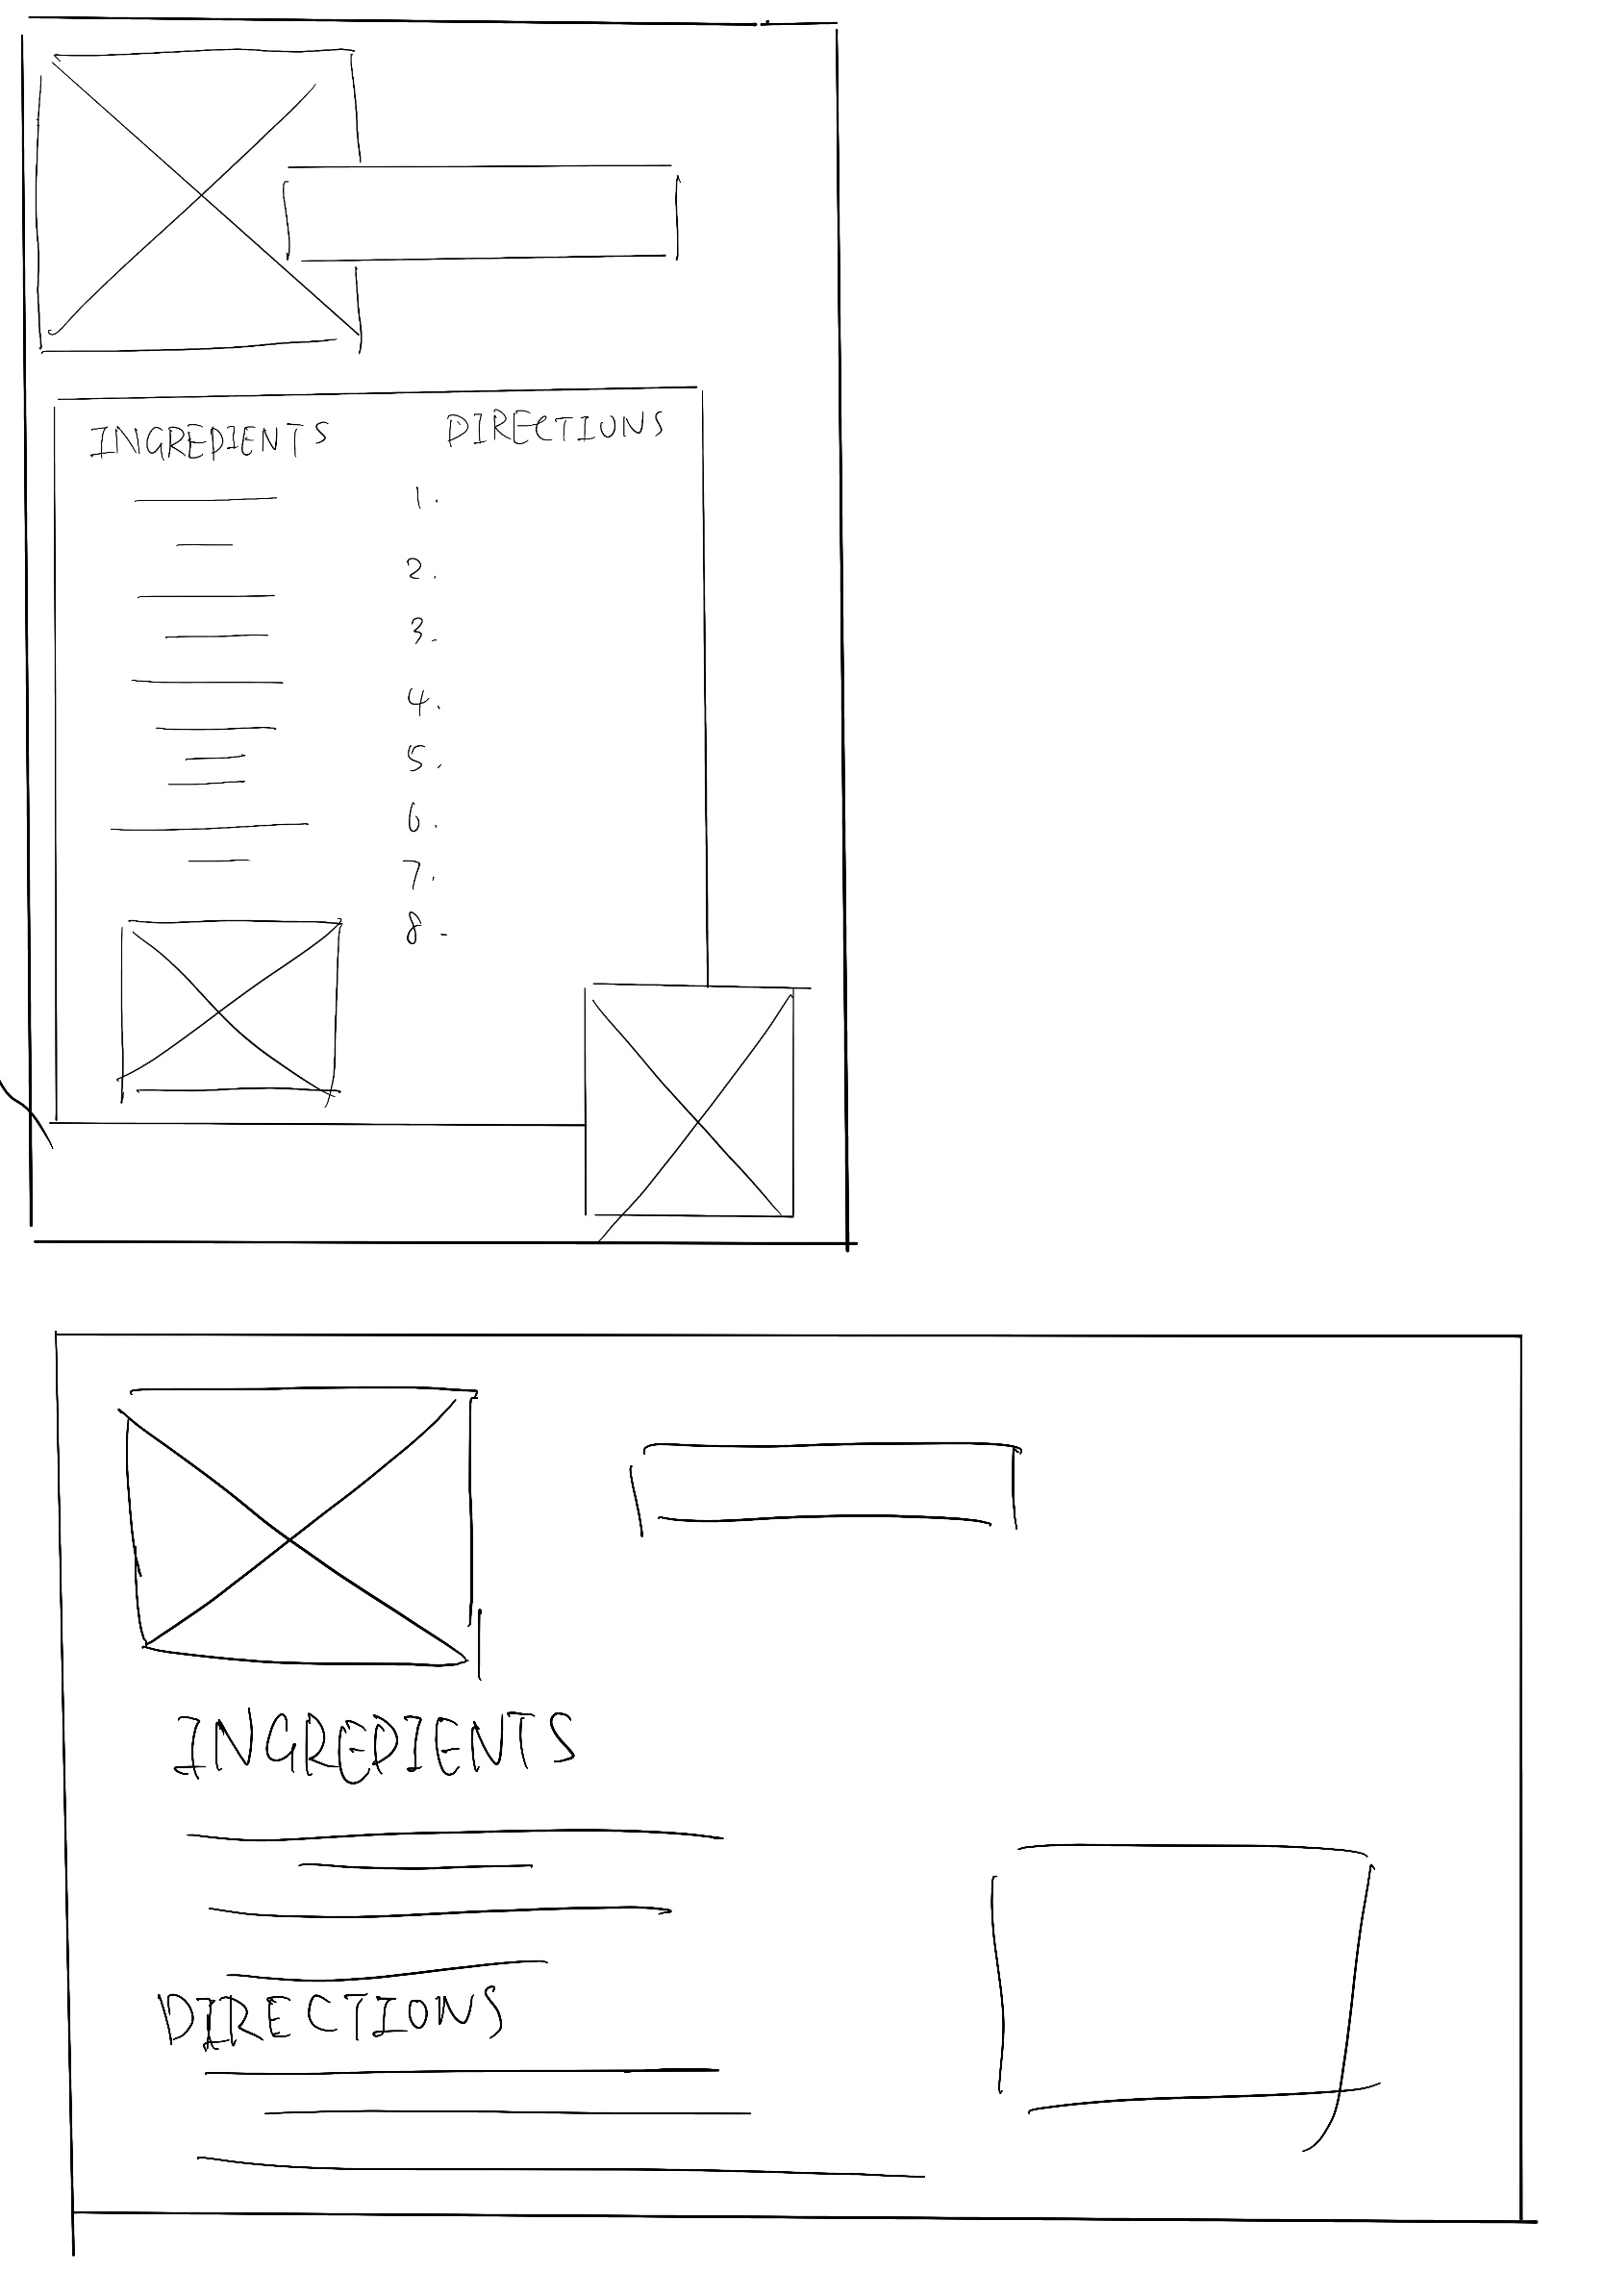 INGREDIENTS DIRECTIONS
1.
2.
3.
4.
5.
6.
7.
8.
INGREDIENTS
DIRECTIONS